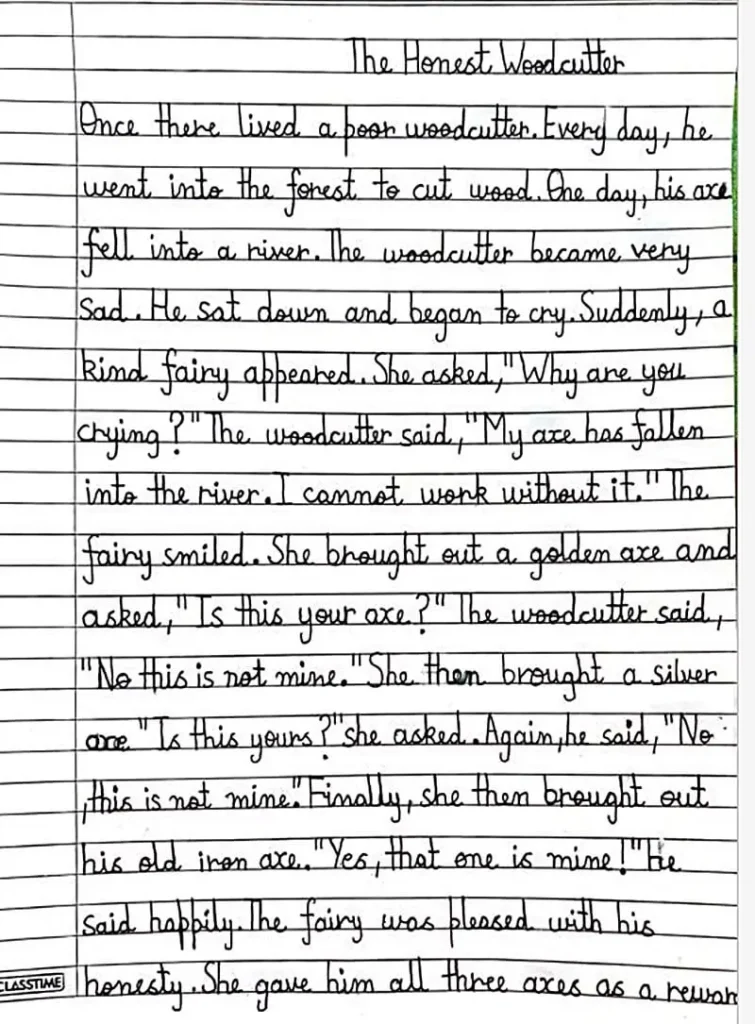 The Honest Woodcutter
Once there lived a poor woodcutter. Every day, he
went into the forest to cut wood. One day, his axe
fell into a river. The woodcutter became very
sad. He sat down and began to cry. Suddenly, a
kind fairy appeared. She asked, "Why are you
crying?" The woodcutter said, "My axe has fallen
into the river. I cannot work without it." The
fairy smiled. She brought out a golden axe and
asked, "Is this your axe?" The woodcutter said,
"No this is not mine." She then brought a silver
axe "Is this yours?" she asked. Again, he said, "No
, this is not mine." Finally, she then brought out
his old iron axe. "Yes, that one is mine!" He
said happily. The fairy was pleased with his
honesty. She gave him all three axes as a rewar
CLASSTIME